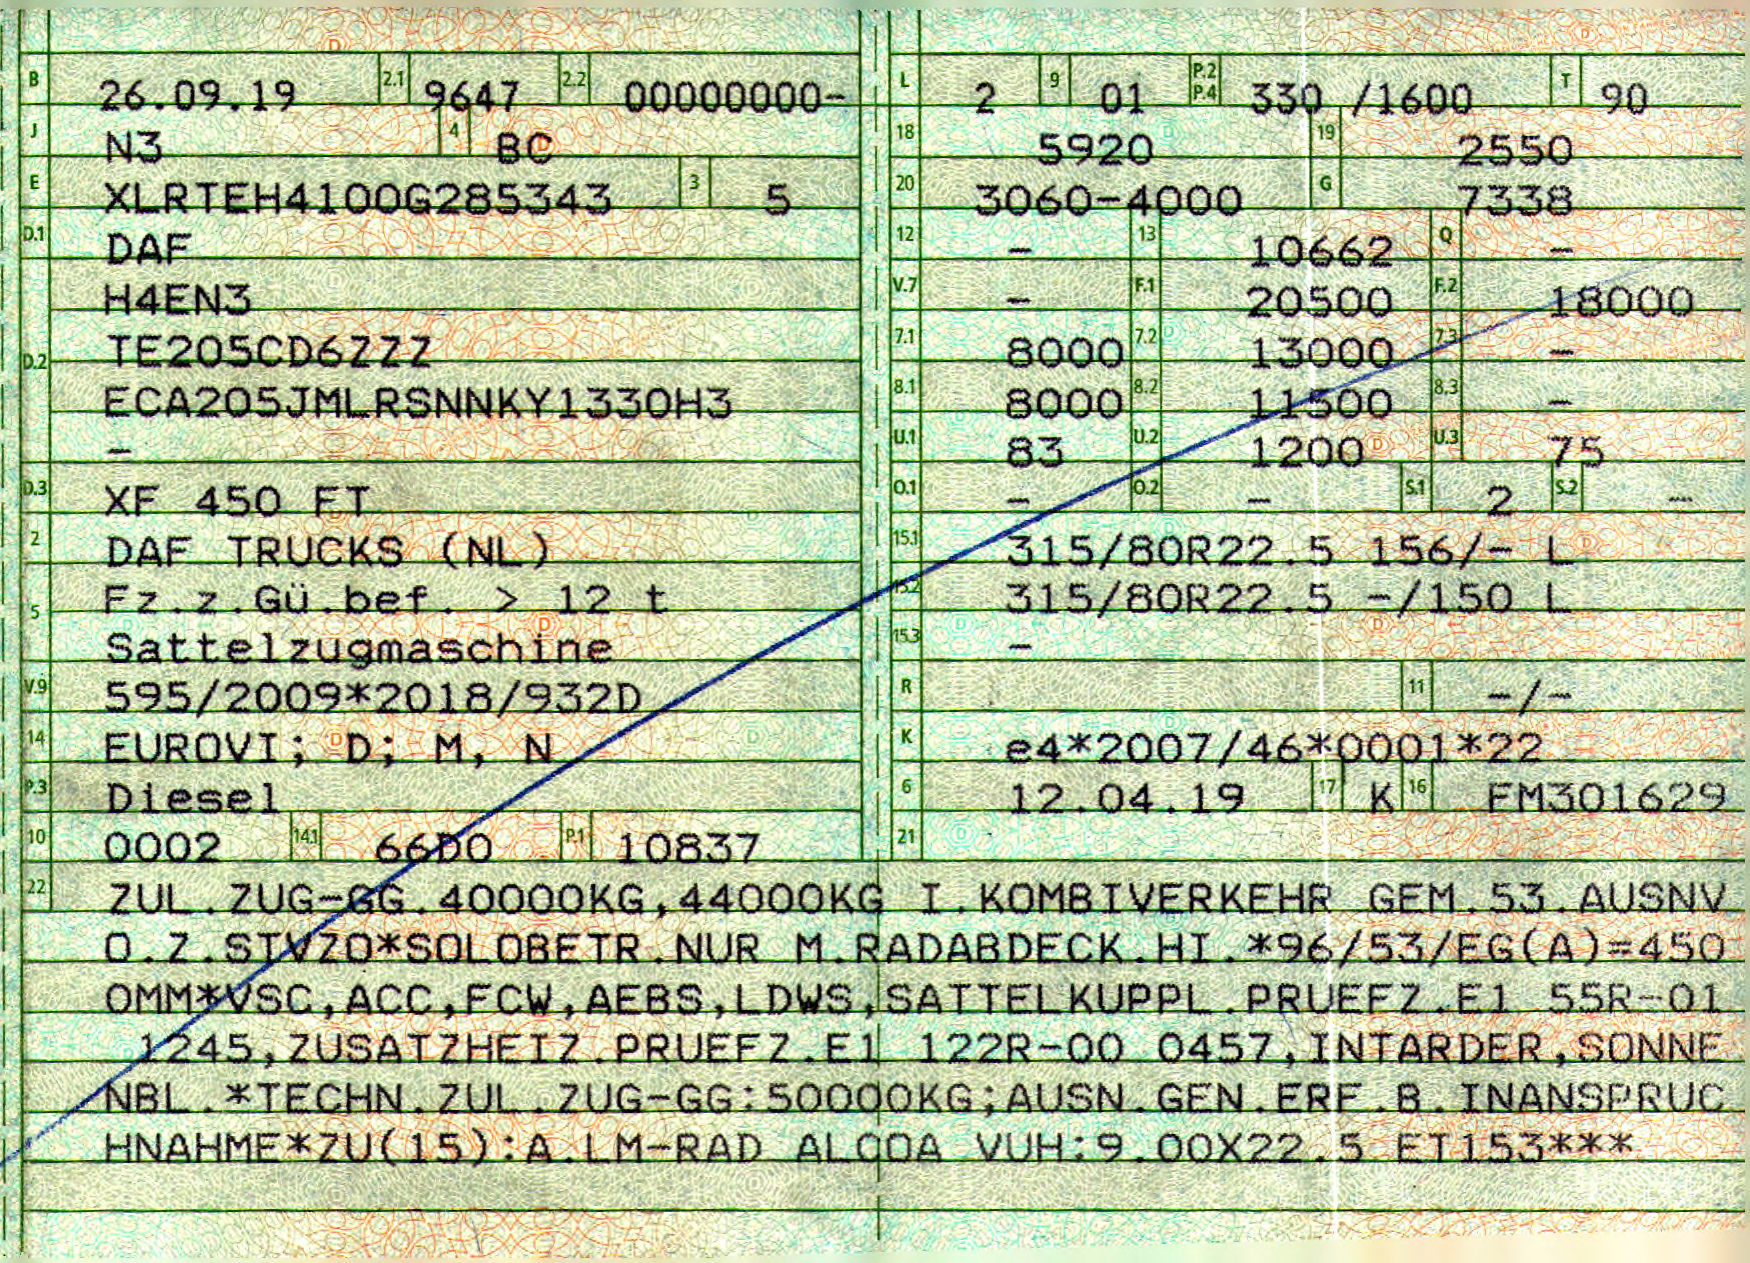 B 26.09.19 2.1 9647 2.2 00000000-
J N3 4 BC
E XLRTEH4100G285343 3 5
D.1 DAF
H4EN3
D.2 TE205CD6ZZZ
ECA205JMLRSNNKY1330H3
-
D.3 XF 450 FT
2 DAF TRUCKS (NL)
5 Fz.z.Gü.bef. > 12 t
Sattelzugmaschine
V.9 595/2009*2018/932D
14 EUROVI; D; M, N
P.3 Diesel
10 0002 14.1 66D0 P.1 10837
L 2 9 01 P.2 P.4 330 /1600 T 90
18 5920 19 2550
20 3060-4000 G 7338
12 - 13 10662 Q -
V.7 - F.1 20500 F.2 18000
7.1 8000 7.2 13000 7.3 -
8.1 8000 8.2 11500 8.3 -
U.1 83 U.2 1200 U.3 75
O.1 - O.2 - S.1 2 S.2 -
15.1 315/80R22.5 156/- L
15.2 315/80R22.5 -/150 L
15.3 -
R 11 -/-
K e4*2007/46*0001*22
6 12.04.19 17 K 16 FM301629
21
22 ZUL.ZUG-GG.40000KG,44000KG I.KOMBIVERKEHR GEM.53.AUSNV
O.Z.STVZO*SOLOBETR.NUR M.RADABDECK.HI.*96/53/EG(A)=450
0MM*VSC,ACC,FCW,AEBS,LDWS,SATTELKUPPL.PRUEFZ.E1 55R-01
1245,ZUSATZHEIZ.PRUEFZ.E1 122R-00 0457,INTARDER,SONNE
NBL.*TECHN.ZUL.ZUG-GG:50000KG;AUSN.GEN.ERF.B.INANSPRUC
HNAHME*ZU(15):A.LM-RAD ALCOA VUH:9.00X22.5 ET153***